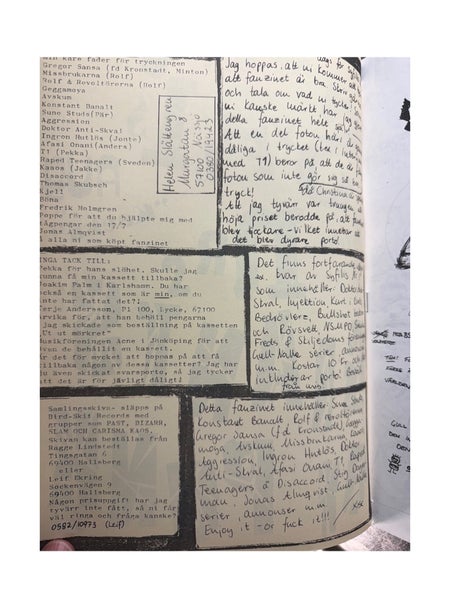 Min käre fader för tryckningen
Gregor Samsa (fd Kronstadt, Minton)
Missbrukarna (Rolf)
Rolf & Revoltörerna (Rolf)
Geggamoya
Avskum
Konstant Banalt
Sune Studs(Pär)
Aggression
Doktor Anti-Skval
Ingron Hutlös (Jonte)
Afasi Onani(Anders)
T! (Pekka)
Raped Teenagers (Sweden)
Kaaos (Jakke)
Disaccord
Thomas Skubsch
Kjell
Böna
Fredrik Holmgren
Poppe för att du hjälpte mig med
tågpengar den 17/7
Jonas Almqvist
i alla ni som köpt fanzinet
Murgatan 8
Jag hoppas, att ni kommer
att fanzinet är bra. Skriv
och tala om vad ni tycker
ni kanske märkt har jag
detta fanzinet hela
Att en del foton har
dåliga i trycket (tex i
med T!) beror på att de är
foton som inte gör sig så bra
tryck!
Att jag tyvärr var tvungen
höja priset berodde på att
blev tjockare - vilket innebar att
det blev dyrare porto!
INGA TACK TILL:
Pekka för hans slöhet. Skulle jag
kunna få min kassett tillbaka?
Joakim Palm i Karlshamn. Du har
också en kassett som är min, om du
inte har fattat det?!
Terje Andersson, Pl 100, Lycke, 67100
Arvika för, att han behöll pengarna
jag skickade som beställning på kassetten
"Ut ur mörkret"
Musikföreningen Acne i Jönköping för att
ven de behållit en kassett.
är det för mycket att hoppas på att få
tillbaka någon av dessa kassetter? Jag har
även skickat svarsporto, så jag tycker
att det är för jävligt dåligt!
Det finns fortfarande
ex. kvar av Syfilis
som innehåller: Doktor
Skval, Injektion, Kurt i
Bedrövlere, Bullshot
och Rövsvett, NSMPO,
Freds & Skiljedoms föreningen
Gull-Kalle serier, annonser
m.m. Kostar 10 kr och
inkluderar porto! Beställ
från mig
Samlingsskiva- släpps på
Bird-Skit Records med
grupper som PAST, BIZARR,
SLAM OCH CARISMA KAOS.
Skivan kan beställas från
Ragge Lindstedt
Tingsgatan 6
69400 Hallsberg
eller
Leif Ekring
Samsenvägen 9
69400 Hallsberg
Någon prisuppgift har jag
tyvärr inte fått, så ni får
väl ringa och fråga kanske?
0582/10973 (Leif)
Detta fanzinet innehåller: Sune Studs,
Konstant Banalt, Rolf & revoltörerna
Gregor Samsa (fd Kronstadt), Gegga-
moya, Avskum, Missbrukarna, Kaaos,
Aggression, Ingron Hutlös, Doktor
Anti-Skval, Afasi Onani, T!, Raped
Teenagers & Disaccord, Stig
man, Jonas Almqvist, Gull-Kalle
serier, annonser m.m.
Enjoy it - or fuck it!!!